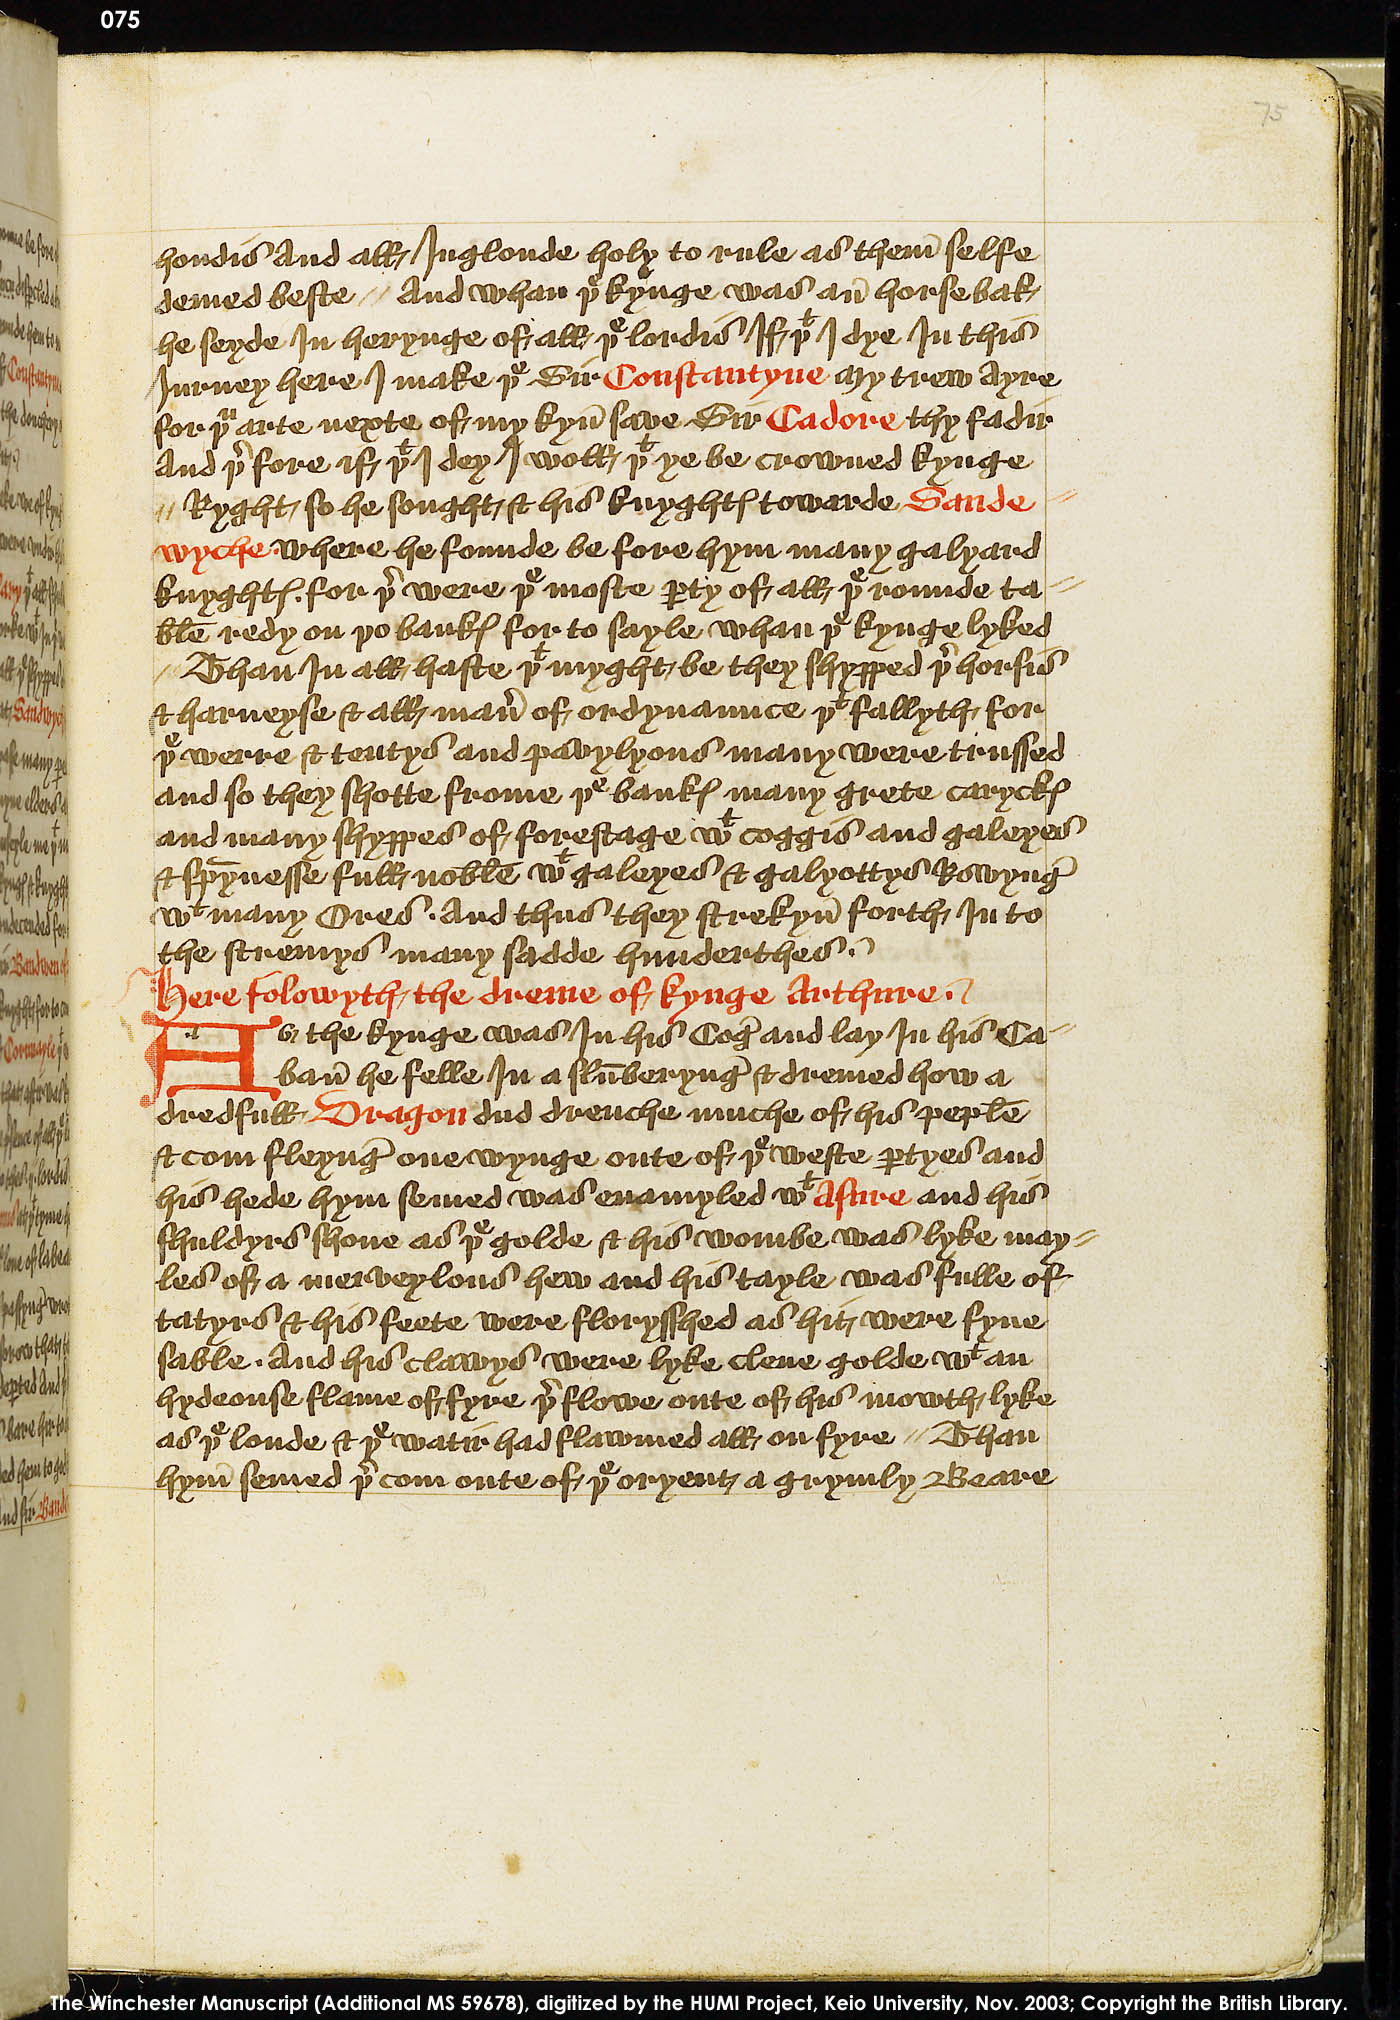 075
75
hondis And all Inglonde holy to rule as them̄ selfe
demed beste // And whan þᵉ kynge was an̄ horse bak
he seyde In herynge of all þᵉ lordis If þᵗ I dye In this
Jurney here I make þᵉ Sir Constantyne My trew Ayre
for þᵘ arte nexte of my kyn̄ save Sir Cadore thy fadir
And þ̉fore if þᵗ I dey I woll þᵗ ye be crowned kynge
// Ryght so he sought & his knyghtꝭ towarde Sande //
wyche where he founde be fore hym many galyard
knyghtꝭ. for þ̉ were þᵉ moste ꝑty of all þᵉ rounde ta //
blē redy on þo bankꝭ for to sayle whan þᵉ kynge lyked
// Than In all haste þᵗ myght be they shypped þ̉ horsis
& harneyse & all man̉ of ordynaunce þᵗ fallyth for
þᵉ werre & tentys and pavylyons many were trussed
and so they shotte frome þᵉ bankꝭ many grete caryckꝭ
and many shyppes of forestage wᵗ coggis and galeyes
& spȳnesse full noblē wᵗ galeyes & galyottys Rowyng̉
wᵗ many Ores . And thus they strekyn̄ forth In to
the stremys many sadde hunderthes .
Here folowyth the dreme of kynge Arthure .
As the kynge was In his Cog̉ and lay In his Ca //
ban̄ he felle In a slūberyng̉ & dremed how a
dredfull Dragon dud drenche muche of his peplē
& com fleyng̉ one wynge oute of þᵉ weste ꝑtyes and
his hede hym semed was enamyled wᵗ Asure and his
shuldyrs shone as þᵉ golde & his wombe was lyke may //
les of a merveylous hew and his tayle was fulle of
tatyrs & his feete were florysshed as hit were fyne
sable . And his clawys were lyke clene golde wᵗ an
hydeouse flame of fyre þ̉ flowe oute of his mowth lyke
as þᵉ londe & þᵉ watir had flawmed all on fyre // Than
hym̄ semed þ̉ com oute of þᵉ oryent a grymly Beare
The Winchester Manuscript (Additional MS 59678), digitized by the HUMI Project, Keio University, Nov. 2003; Copyright the British Library.